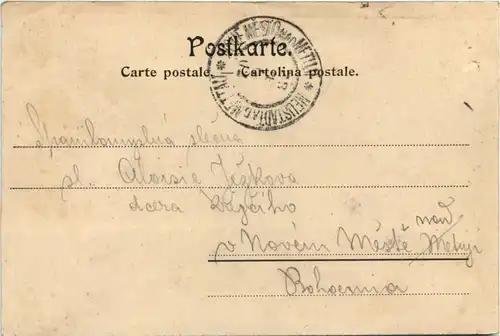 Postkarte.
Carte postale. — Cartolina postale.
NOVÉ MĚSTO NAD METUJÍ
NEUSTADT A.D. METTAU
slečna
sl. Aloisie Ježkova
dcera
v Novém Městě nad Metují
Bohemia